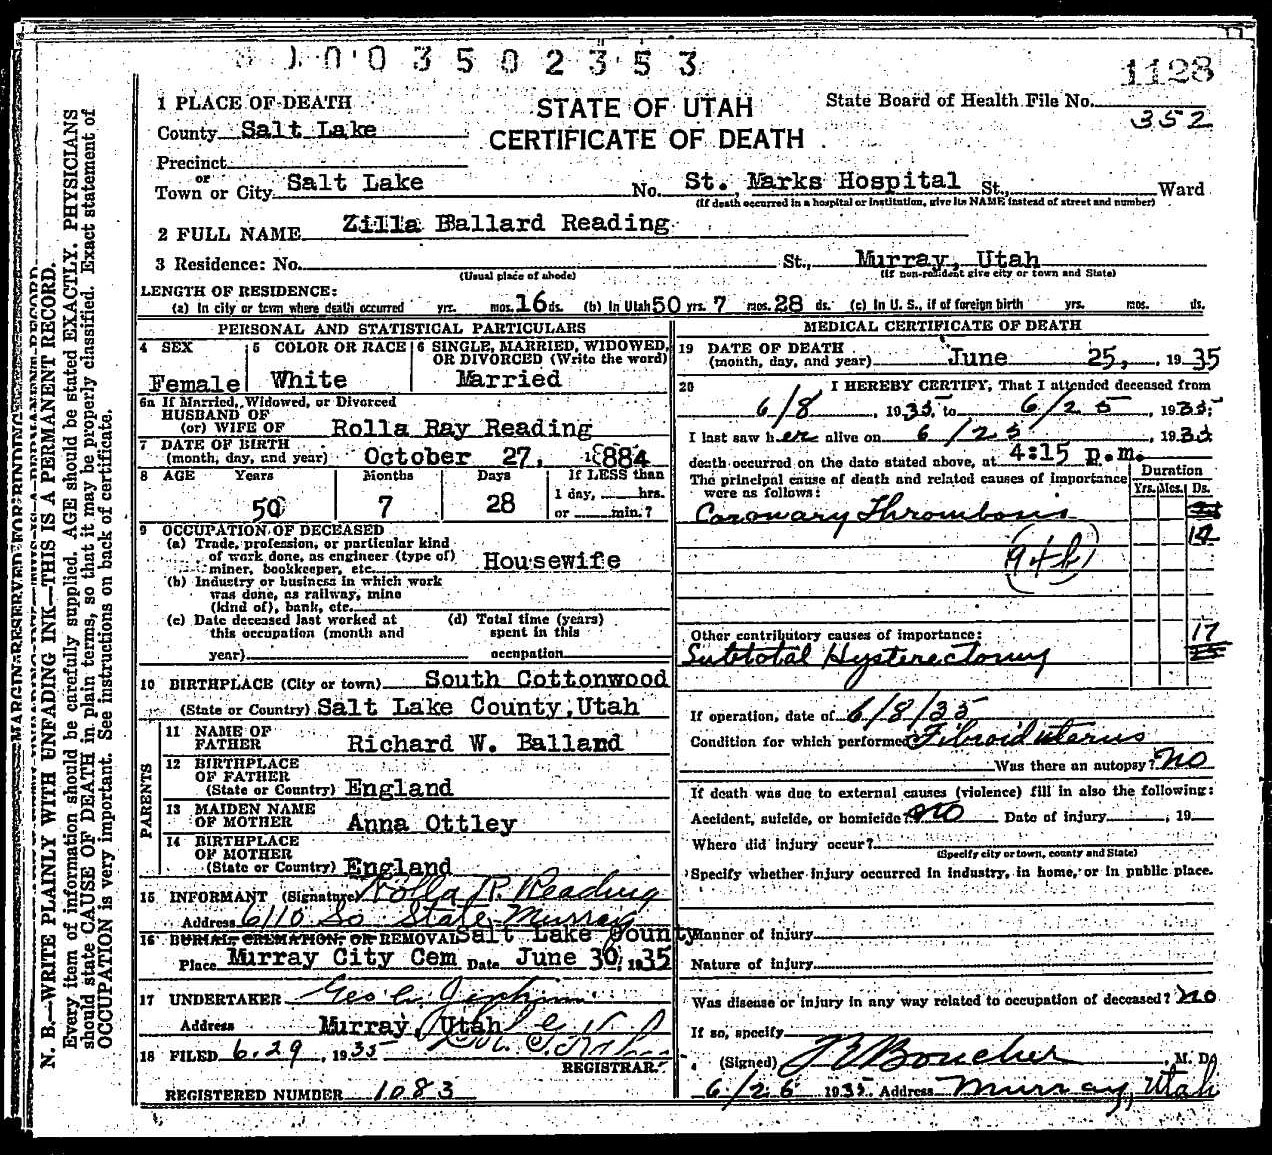 1003502353
1128
1 PLACE OF DEATH
STATE OF UTAH
CERTIFICATE OF DEATH
State Board of Health File No.
352
County Salt Lake
Precinct
or
Town or City Salt Lake No. St. Marks Hospital St., Ward
(If death occurred in a hospital or institution, give its NAME instead of street and number)
2 FULL NAME Zilla Ballard Reading
3 Residence: No. St., Murray, Utah
(Usual place of abode) (If non-resident give city or town and State)
LENGTH OF RESIDENCE:
(a) In city or town where death occurred yrs. mos. 16 ds. (b) In Utah 50 yrs. 7 mos. 28 ds. (c) In U. S., if of foreign birth yrs. mos. ds.
PERSONAL AND STATISTICAL PARTICULARS
4 SEX Female
5 COLOR OR RACE White
6 SINGLE, MARRIED, WIDOWED, OR DIVORCED (Write the word) Married
6a If Married, Widowed, or Divorced
HUSBAND OF
(or) WIFE OF Rolla Ray Reading
7 DATE OF BIRTH
(month, day, and year) October 27, 1884
8 AGE Years Months Days If LESS than
50 7 28 1 day, hrs.
or min.?
9 OCCUPATION OF DECEASED
(a) Trade, profession, or particular kind
of work done, as engineer (type of)
miner, bookkeeper, etc. Housewife
(b) Industry or business in which work
was done, as railway, mine
(kind of), bank, etc.
(c) Date deceased last worked at
this occupation (month and
year)
(d) Total time (years)
spent in this
occupation
10 BIRTHPLACE (City or town) South Cottonwood
(State or Country) Salt Lake County, Utah
PARENTS
11 NAME OF
FATHER Richard W. Ballard
12 BIRTHPLACE
OF FATHER
(State or Country) England
13 MAIDEN NAME
OF MOTHER Anna Ottley
14 BIRTHPLACE
OF MOTHER
(State or Country) England
15 INFORMANT (Signature) Rolla R. Reading
Address 6110 So State Murray
16 BURIAL, CREMATION, OR REMOVAL Salt Lake County
Place Murray City Cem Date June 30, 1935
17 UNDERTAKER Geo C.
Address Murray, Utah
18 FILED 6.29, 1935
REGISTRAR.
REGISTERED NUMBER 1083
MEDICAL CERTIFICATE OF DEATH
19 DATE OF DEATH
(month, day, and year) June 25, 1935
20 I HEREBY CERTIFY, That I attended deceased from
6/8, 1935 to 6/25, 1935
I last saw her alive on 6/25, 1935
death occurred on the date stated above, at 4:15 p.m.
The principal cause of death and related causes of importance
were as follows:
Duration
Yrs. Mos. Ds.
Coronary Thrombosis
14
(94b)
Other contributory causes of importance:
17
Subtotal Hysterectomy
If operation, date of 6/8/35
Condition for which performed Fibroid uterus
Was there an autopsy? no
If death was due to external causes (violence) fill in also the following:
Accident, suicide, or homicide? no Date of injury , 19
Where did injury occur?
(Specify city or town, county and State)
Specify whether injury occurred in industry, in home, or in public place.
Manner of injury
Nature of injury
Was disease or injury in any way related to occupation of deceased? no
If so, specify
(Signed) Boucher, M. D.
6/26 1935 Address Murray, Utah
MARGIN RESERVED FOR BINDING
N. B.—WRITE PLAINLY WITH UNFADING INK—THIS IS A PERMANENT RECORD.
Every item of information should be carefully supplied. AGE should be stated EXACTLY. PHYSICIANS
should state CAUSE OF DEATH in plain terms, so that it may be properly classified. Exact statement of
OCCUPATION is very important. See instructions on back of certificate.